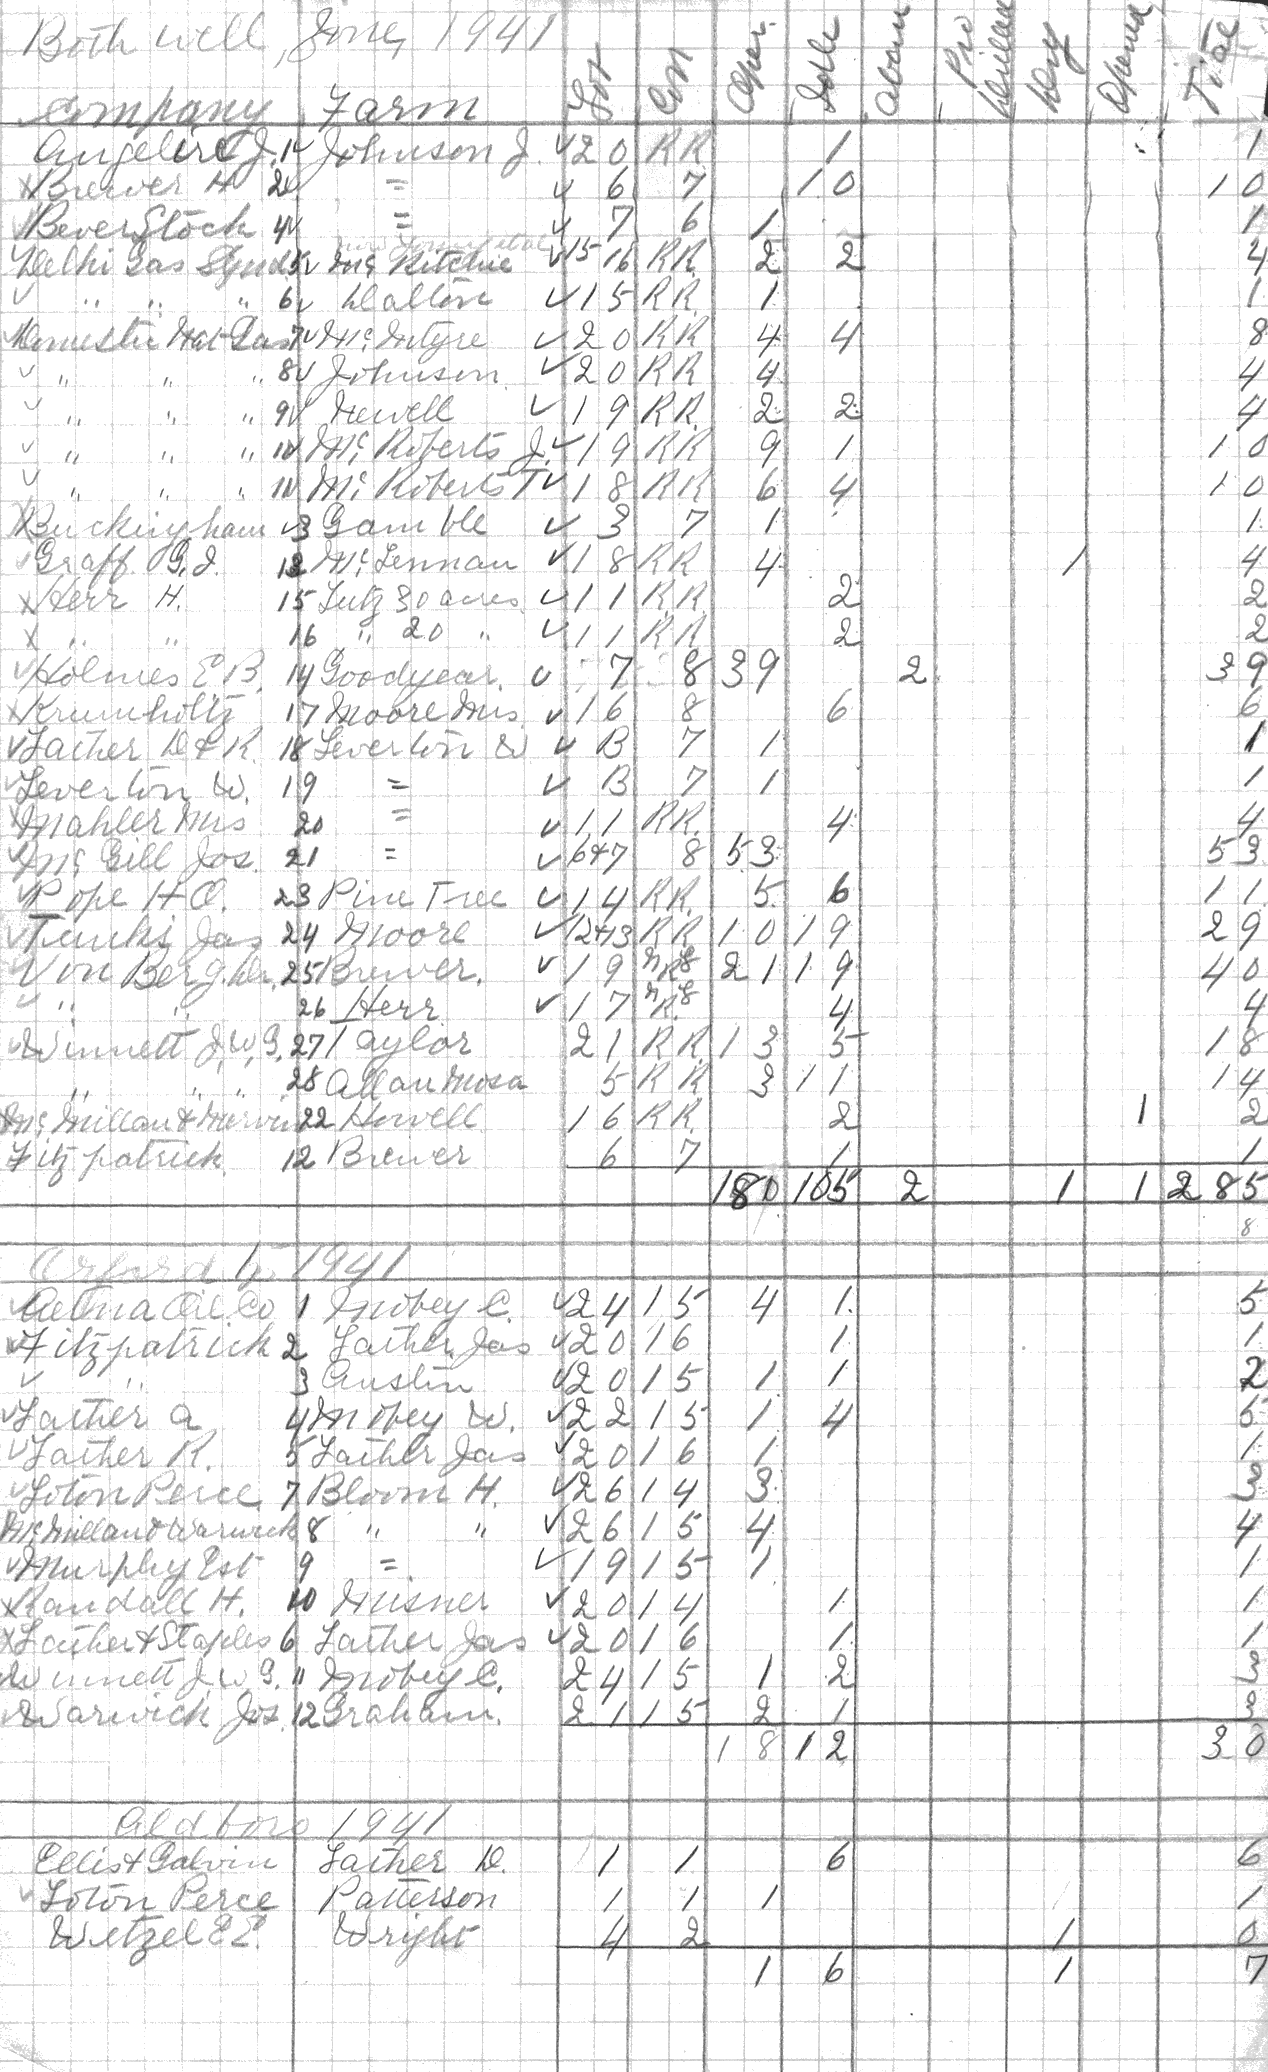 Bothwell, Zone, 1941
Company Farm Lot Con Oper. Idle Aban Dry Opened Total
Angeline J. 1 ✓ Johnson J. ✓ 20 RR 1 1
x Brewer H 2 ✓ = ✓ 6 7 10 10
✓ Bever Stock 4 ✓ = ✓ 7 6 1 1
Delhi Gas Synd 5 ✓ Mc Ritchie ✓ 15 16 RR 2 2 4
✓ " " " 6 ✓ Dalton ✓ 15 RR 1 1
✓ Domestic Nat Gas 7 ✓ Mc Intyre ✓ 20 RR 4 4 8
✓ " " " 8 ✓ Johnson ✓ 20 RR 4 4
✓ " " " 9 ✓ Newell ✓ 19 RR 2 2 4
✓ " " " 10 ✓ Mc Roberts J. ✓ 19 RR 9 1 10
✓ " " " 11 ✓ Mc Roberts T ✓ 18 RR 6 4 10
x Buckingham ✓ 3 Gamble ✓ 3 7 1 1
✓ Graff G.J. 13 Mc Lennan ✓ 18 RR 4 1 4
x Herr H. 15 Lutz 30 acres ✓ 11 RR 2 2
x " " 16 " 20 " ✓ 11 RR 2 2
✓ Holmes E B. 14 Goodyear. ✓ 7 8 39 2 39
x Krumholtz 17 Moore Mrs ✓ 16 8 6 6
✓ Lather D & R. 18 Leverton W ✓ B 7 1 1
✓ Leverton W. 19 = ✓ B 7 1 1
x Mahler Mrs 20 = ✓ 11 RR. 4 4
✓ Mc Gill Jos. 21 = ✓ 6+7 8 53 53
✓ Pope H.O. 23 Pine Tree ✓ 14 RR. 5 6 11
✓ Jas 24 Moore ✓ 12+13 RR 10 19 29
Von Berg Dr. 25 Brewer. ✓ 19 21 19 40
✓ " " 26 Herr ✓ 17 4 4
✓ Winnett J.W.G. 27 Taylor 21 RR. 13 5 18
" " " 28 Allan Mosa 5 RR 3 11 14
x Mc Millan & 22 Howell 16 RR. 2 1 2
Fitzpatrick 12 Brewer 6 7 1 1
180 105 2 1 1 285
8
Orford 1941
✓ Aetna Oil Co 1 Mobey C. ✓ 24 15 4 1 5
✓ Fitzpatrick 2 Lather Jas ✓ 20 16 1 1
✓ " 3 Austin ✓ 20 15 1 1 2
✓ Lather A 4 Mobey W. ✓ 22 15 1 4 5
✓ Lather R. 5 Lather Jas ✓ 20 16 1 1
✓ Loton Perce 7 Bloom H. ✓ 26 14 3 3
Mc Millan & Warwick 8 " " ✓ 26 15 4 4
✓ Murphy Est 9 = ✓ 19 15 1 1
x Randall H. 10 Misner ✓ 20 14 1 1
x Lather & Staples 6 Lather Jas ✓ 20 16 1 1
Winnett J.W.G. 11 Mobey C. 24 15 1 2 3
Warwick Jos. 12 Graham. 21 15 2 1 3
18 12 30
Aldboro 1941
Ellis & Galvin Lather D. 1 1 6 6
✓ Loton Perce Patterson 1 1 1 1
Wetzel E E. Wright 4 2 1 0
1 6 1 7